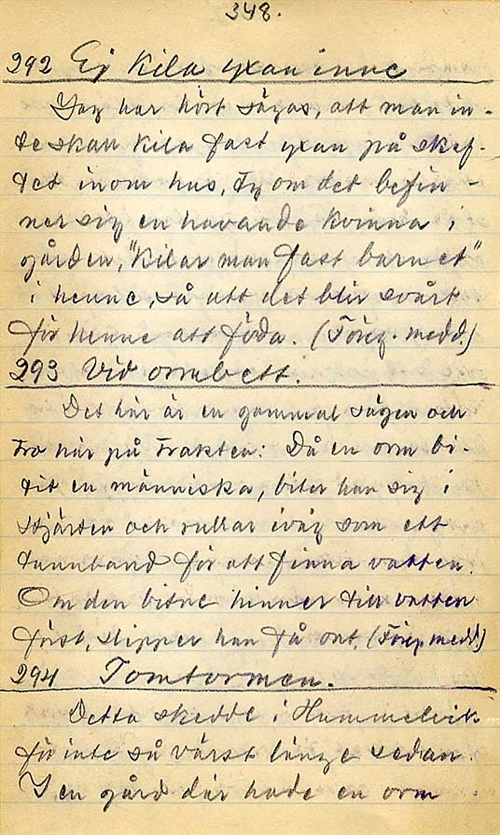 348.
292 Ej kila yxan inne
Jag har hört sägas, att man in-
te skall kila fast yxan på skaf-
tet inom hus, ty om det befin-
ner sig en havande kvinna i
gården, "kilar man fast barnet"
i henne, så att det blir svårt
för henne att föda. (Föreg. medd)
293 Vid ormbett.
Det här är en gammal sägen och
tro här på trakten: Då en orm bi-
tit en människa, biter han sig i
stjärten och rullar iväg som ett
tunnband för att finna vatten.
Om den bitne hinner till vatten
först, slipper han få ont. (Föreg medd)
294 Tomtormen.
Detta skedde i Hammelvik
för inte så värst länge sedan.
I en gård där hade en orm